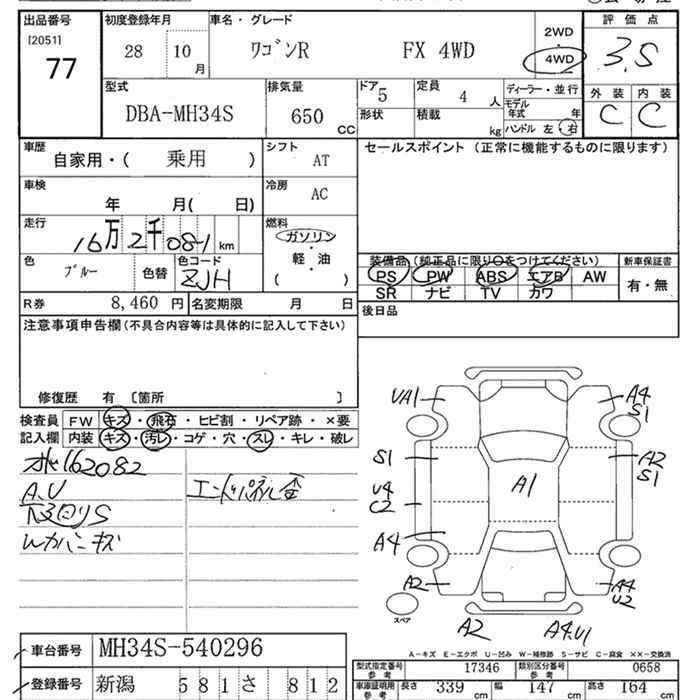 出品番号 初度登録年月 車名・グレード 評価点
[2051] 77 28 10月 ワゴンR FX 4WD 2WD・4WD 3.5
型式 DBA-MH34S 排気量 650 CC ドア 5 形状 定員 4 人 積載 kg
ディーラー・並行 モデル年式 年 ハンドル 左・右
外装 C 内装 C
車歴 自家用・( 乗用 ) シフト AT
セールスポイント (正常に機能するものに限ります)
車検 年 月( 日) 冷房 AC
走行 16万2千081 km 燃料 ガソリン・軽・油・( )
色 ブルー 色替 色コード ZJH
装備品 (純正品に限り○をつけてください) 新車保証書
PS PW ABS エアB AW 有・無
SR ナビ TV カワ
R券 8,460 円 名変期限 月 日
後日品
注意事項申告欄 (不具合内容等は具体的に記入して下さい)
修復歴 有 〔箇所 〕
検査員 FW キズ・飛石・ヒビ割・リペア跡・×要
記入欄 内装 キズ・汚レ・コゲ・穴・スレ・キレ・破レ
162082
A.U
下回りS
カバーキズ
UA1 A4 S1
S1 A2 S1
U4 C2 A1
A4
A2 A4 U2
スペア
A2 A4.U1
A-キズ E-エクボ U-凹み W-補修跡 S-サビ C-腐食 ××-交換済
車台番号 MH34S-540296
型式指定番号 参考 17346 類別区分番号 参考 0658
登録番号 新潟 581 さ 812
車庫証明用 参考 長さ 339 cm 幅 147 cm 高さ 164 cm